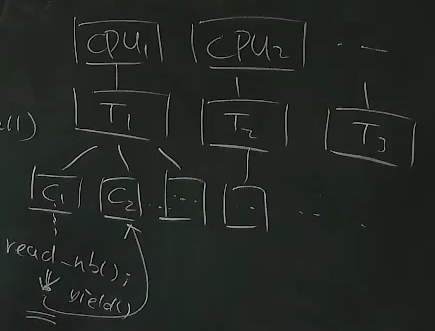 CPU1 CPU2 ...
T1 T2 T3
C1 C2 ... ... ...
read_nb();
yield()